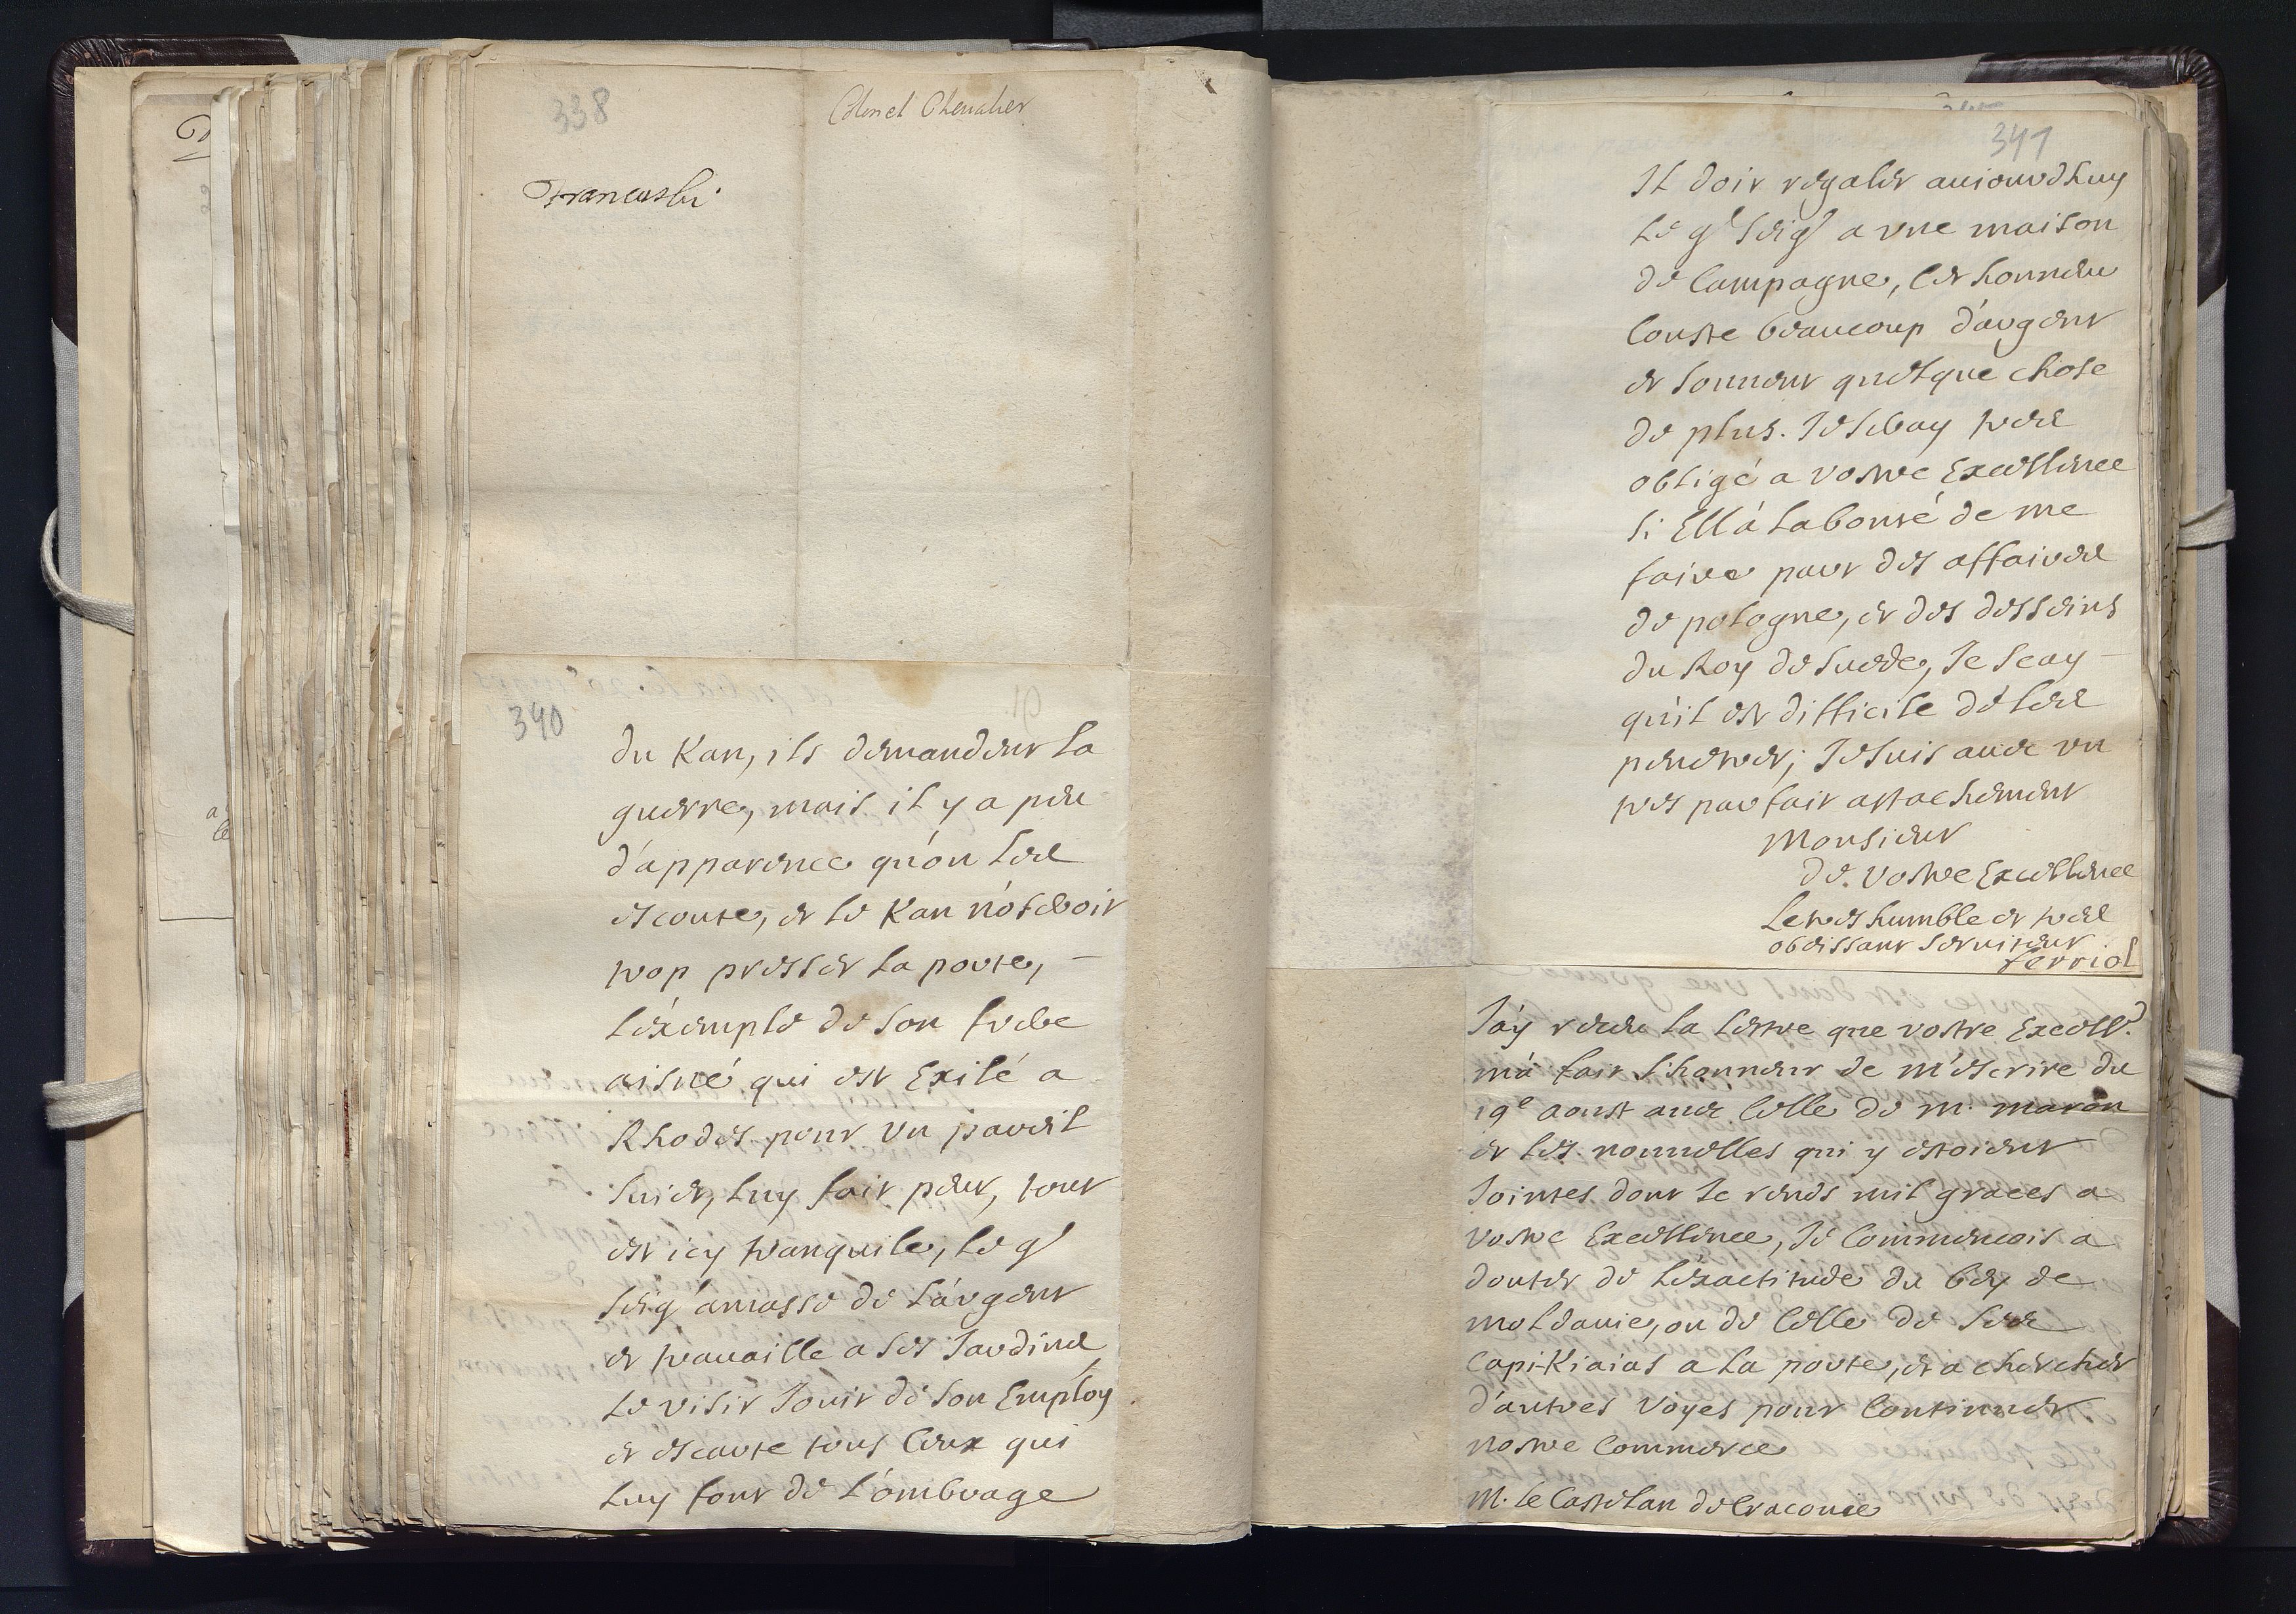 338
Colonel Chevalier
Francuski
340
du Kan, ils demandent la
guerre, mais il y a peu
d'apparence qu'on les
escoute, et le Kan n'oseroit
trop presser la porte,
l'éxemple de son frere
aisné qui est Exilé a
Rhodes pour un pareil
suiet, luy fait peur, tout
est icy tranquile, le gd
seigr amasse de l'árgent
et trauaille a ses Jardins
le visir Jouit de son Employ
et escarte tous ceux qui
luy font de l'ombrage
341
Il doit regaler auiourdhuy
le gd seigr a une maison
de Campagne, ces honneurs
Couste beaucoup d'argent
et souuent quelque chose
de plus. Je seray tres
obligé a vostre Excellence
si Ell'á la bonté de me
faire part des affaires
de pologne, et des desseins
du Roy de suede, Je scay
qu'il est difficile de les
penetrer; Je suis auec un
tres parfait attachement
Monsieur
de vostre Excellence
Le tres humble et tres
obeissant seruiteur
ferriol
J'áy receu la lettre que vostre Excelle
m'á fait l'honneur de m'éscrire du
19e aoust auec Celle de m. maron
et les nouuelles qui y estoient
Jointes dont Je rends mil graces a
vostre Excellence, Je Commencois a
douter de l'exactitude du bey de
moldauie, ou de Celle de ses
Capi-Kiaias a la porte, et a chercher
d'autres voyes pour Continuer
nostre Commerce
M. le Castelan de Cracouie